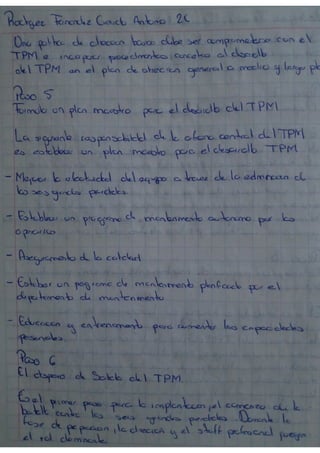 Rodriguez Fernandez Cesar Antonio 2K
Una politica de direccion basica debe ser comprometerse con el
TPM e incorporar procedimientos concretos al desarrollo
del TPM en el plan de direccion general a medio y largo
Paso 5
Formular un plan maestro para el desarrollo del TPM
La siguiente responsabilidad de la oficina central del TPM
es establecer un plan maestro para el desarrollo TPM
- Mejorar la efectividad del equipo a traves de la eliminacion de
las seis grandes perdidas
- Establecer un programa de mantenimiento autonomo por los
operarios
- Aseguramiento de la calidad
- Establecer un programa de mantenimiento planificado por el
departamento de mantenimiento
- Educacion y entrenamiento para aumentar las capacidades
personales.
Paso 6
El disparo de Salida del TPM
Es el primer paso para la implantacion, el comienzo de la
batalla contra las seis grandes perdidas. Durante la
fase de preparacion, la direccion y el staff profesional juegan
el rol dominante